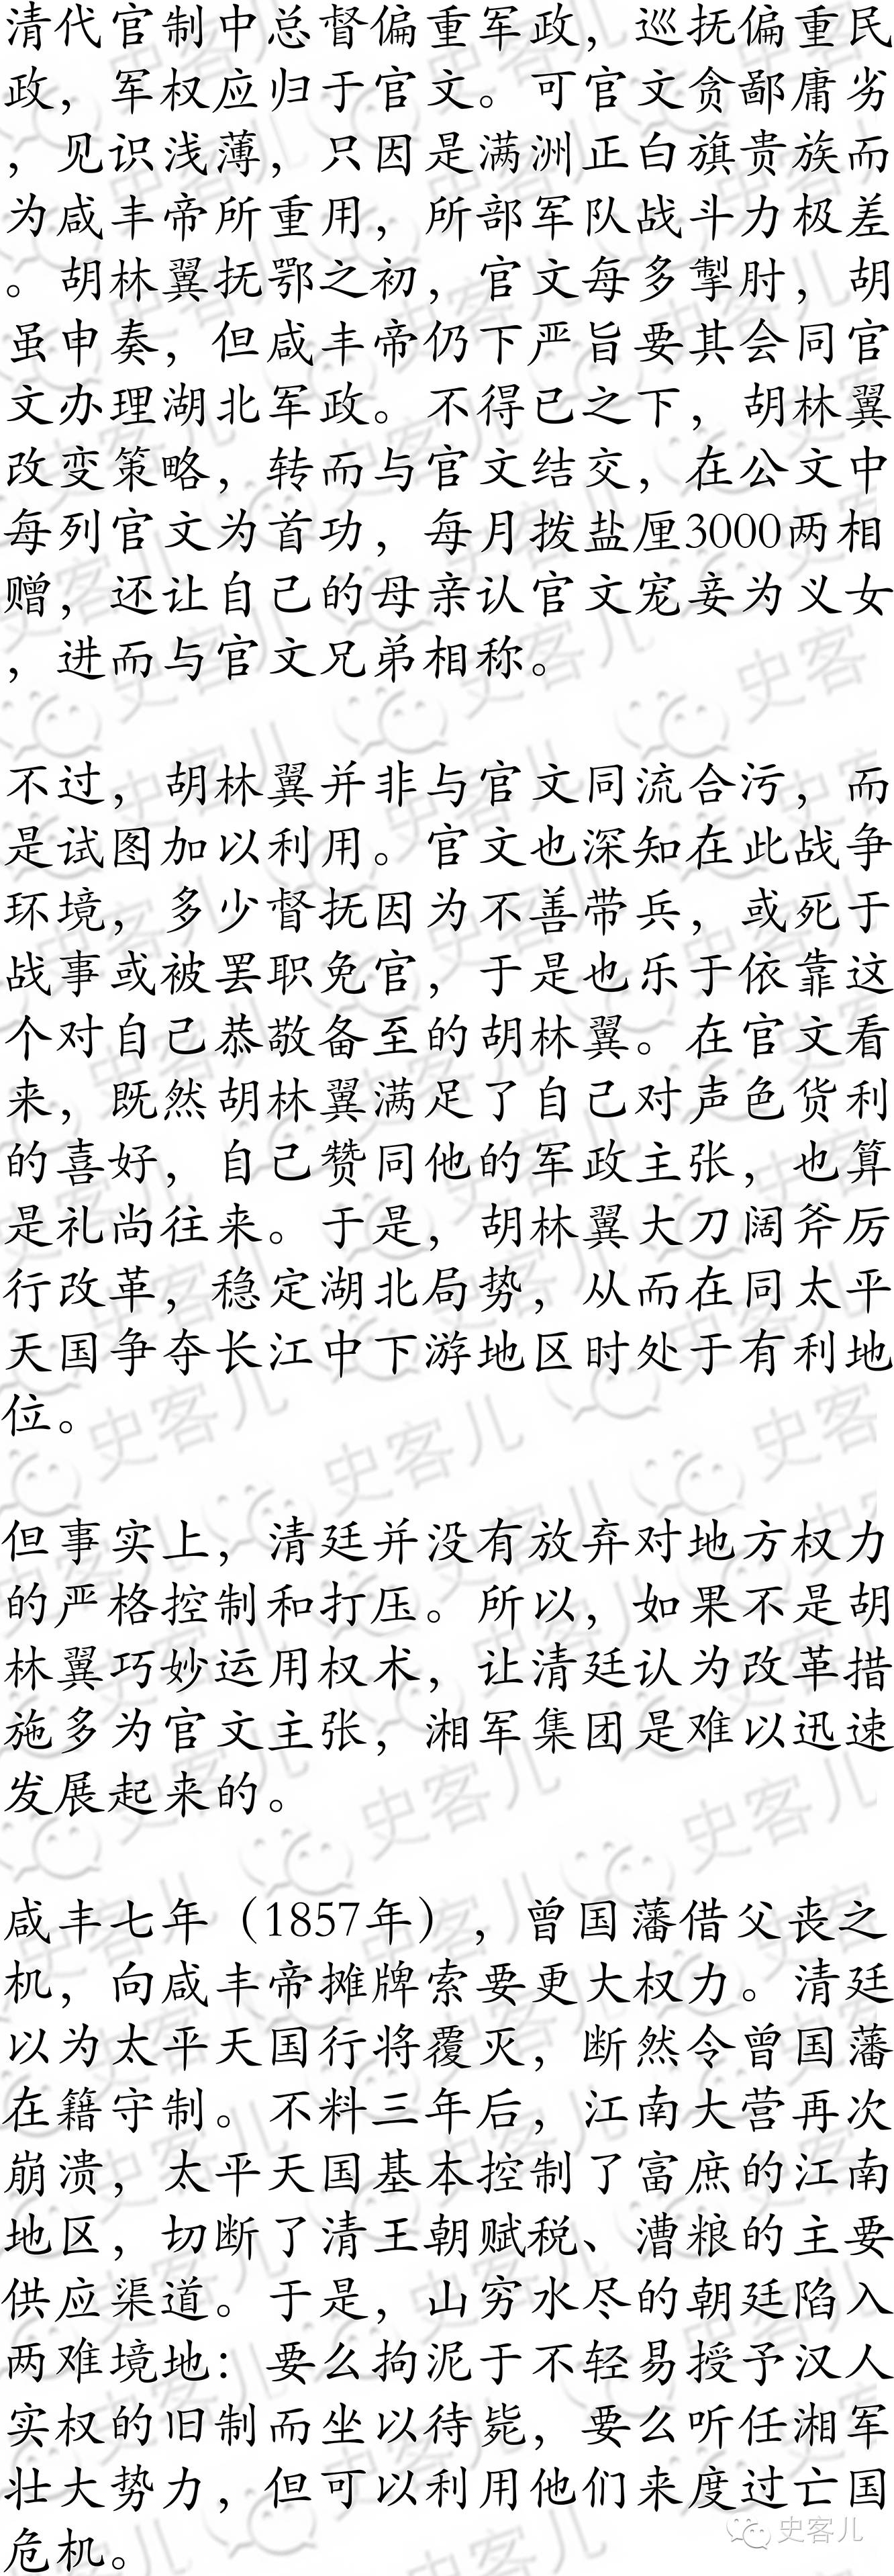 清代官制中总督偏重军政，巡抚偏重民
政，军权应归于官文。可官文贪鄙庸劣
，见识浅薄，只因是满洲正白旗贵族而
为咸丰帝所重用，所部军队战斗力极差
。胡林翼抚鄂之初，官文每多掣肘，胡
虽申奏，但咸丰帝仍下严旨要其会同官
文办理湖北军政。不得已之下，胡林翼
改变策略，转而与官文结交，在公文中
每列官文为首功，每月拨盐厘3000两相
赠，还让自己的母亲认官文宠妾为义女
，进而与官文兄弟相称。
不过，胡林翼并非与官文同流合污，而
是试图加以利用。官文也深知在此战争
环境，多少督抚因为不善带兵，或死于
战事或被罢职免官，于是也乐于依靠这
个对自己恭敬备至的胡林翼。在官文看
来，既然胡林翼满足了自己对声色货利
的喜好，自己赞同他的军政主张，也算
是礼尚往来。于是，胡林翼大刀阔斧厉
行改革，稳定湖北局势，从而在同太平
天国争夺长江中下游地区时处于有利地
位。
但事实上，清廷并没有放弃对地方权力
的严格控制和打压。所以，如果不是胡
林翼巧妙运用权术，让清廷认为改革措
施多为官文主张，湘军集团是难以迅速
发展起来的。
咸丰七年（1857年），曾国藩借父丧之
机，向咸丰帝摊牌索要更大权力。清廷
以为太平天国行将覆灭，断然令曾国藩
在籍守制。不料三年后，江南大营再次
崩溃，太平天国基本控制了富庶的江南
地区，切断了清王朝赋税、漕粮的主要
供应渠道。于是，山穷水尽的朝廷陷入
两难境地：要么拘泥于不轻易授予汉人
实权的旧制而坐以待毙，要么听任湘军
壮大势力，但可以利用他们来度过亡国
危机。
史客儿